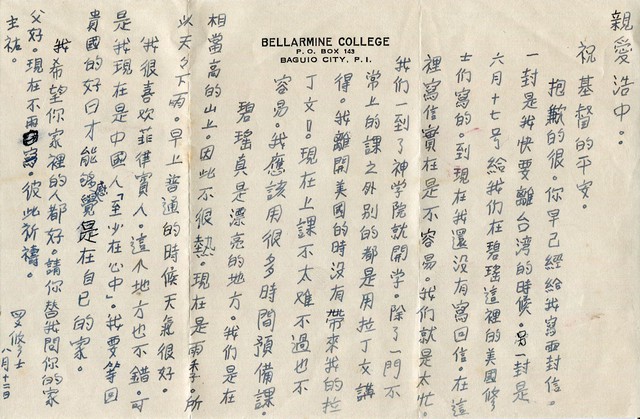 BELLARMINE COLLEGE
P. O. BOX 143
BAGUIO CITY, P. I.
親愛浩中：
祝基督的平安。
抱歉的很。你早已經給我寫兩封信。
一封是我快要離台湾的時候。另一封是
六月十七号給我们在碧瑤這裡的美國修
士们寫的。到現在我還没有寫回信。在這
裡寫信實在是不容易。我们就是太忙。
我们一到了神学院就開学。除了一門不
常上的課之外別的都是用拉丁文講
得。我離開美國的時没有帶來我的拉
丁文！！現在上課不太难不過也不
容易。我應該用很多時間預備課。
碧瑤真是漂亮的地方。我们是在
相當高的山上。因此不很熱。現在是雨季。所
以天々下雨。早上普通的時候天氣很好。
我很喜欢菲律賓人。這个地方也不錯。可
是我現在是中國人「至少在心中」。我要等回
貴國的好日才能感覺是在自已的家。
我希望你家裡的人都好。請你替我問你的家
父好。現在不再寫。彼此祈禱。
主祐。
修士
八月十二日